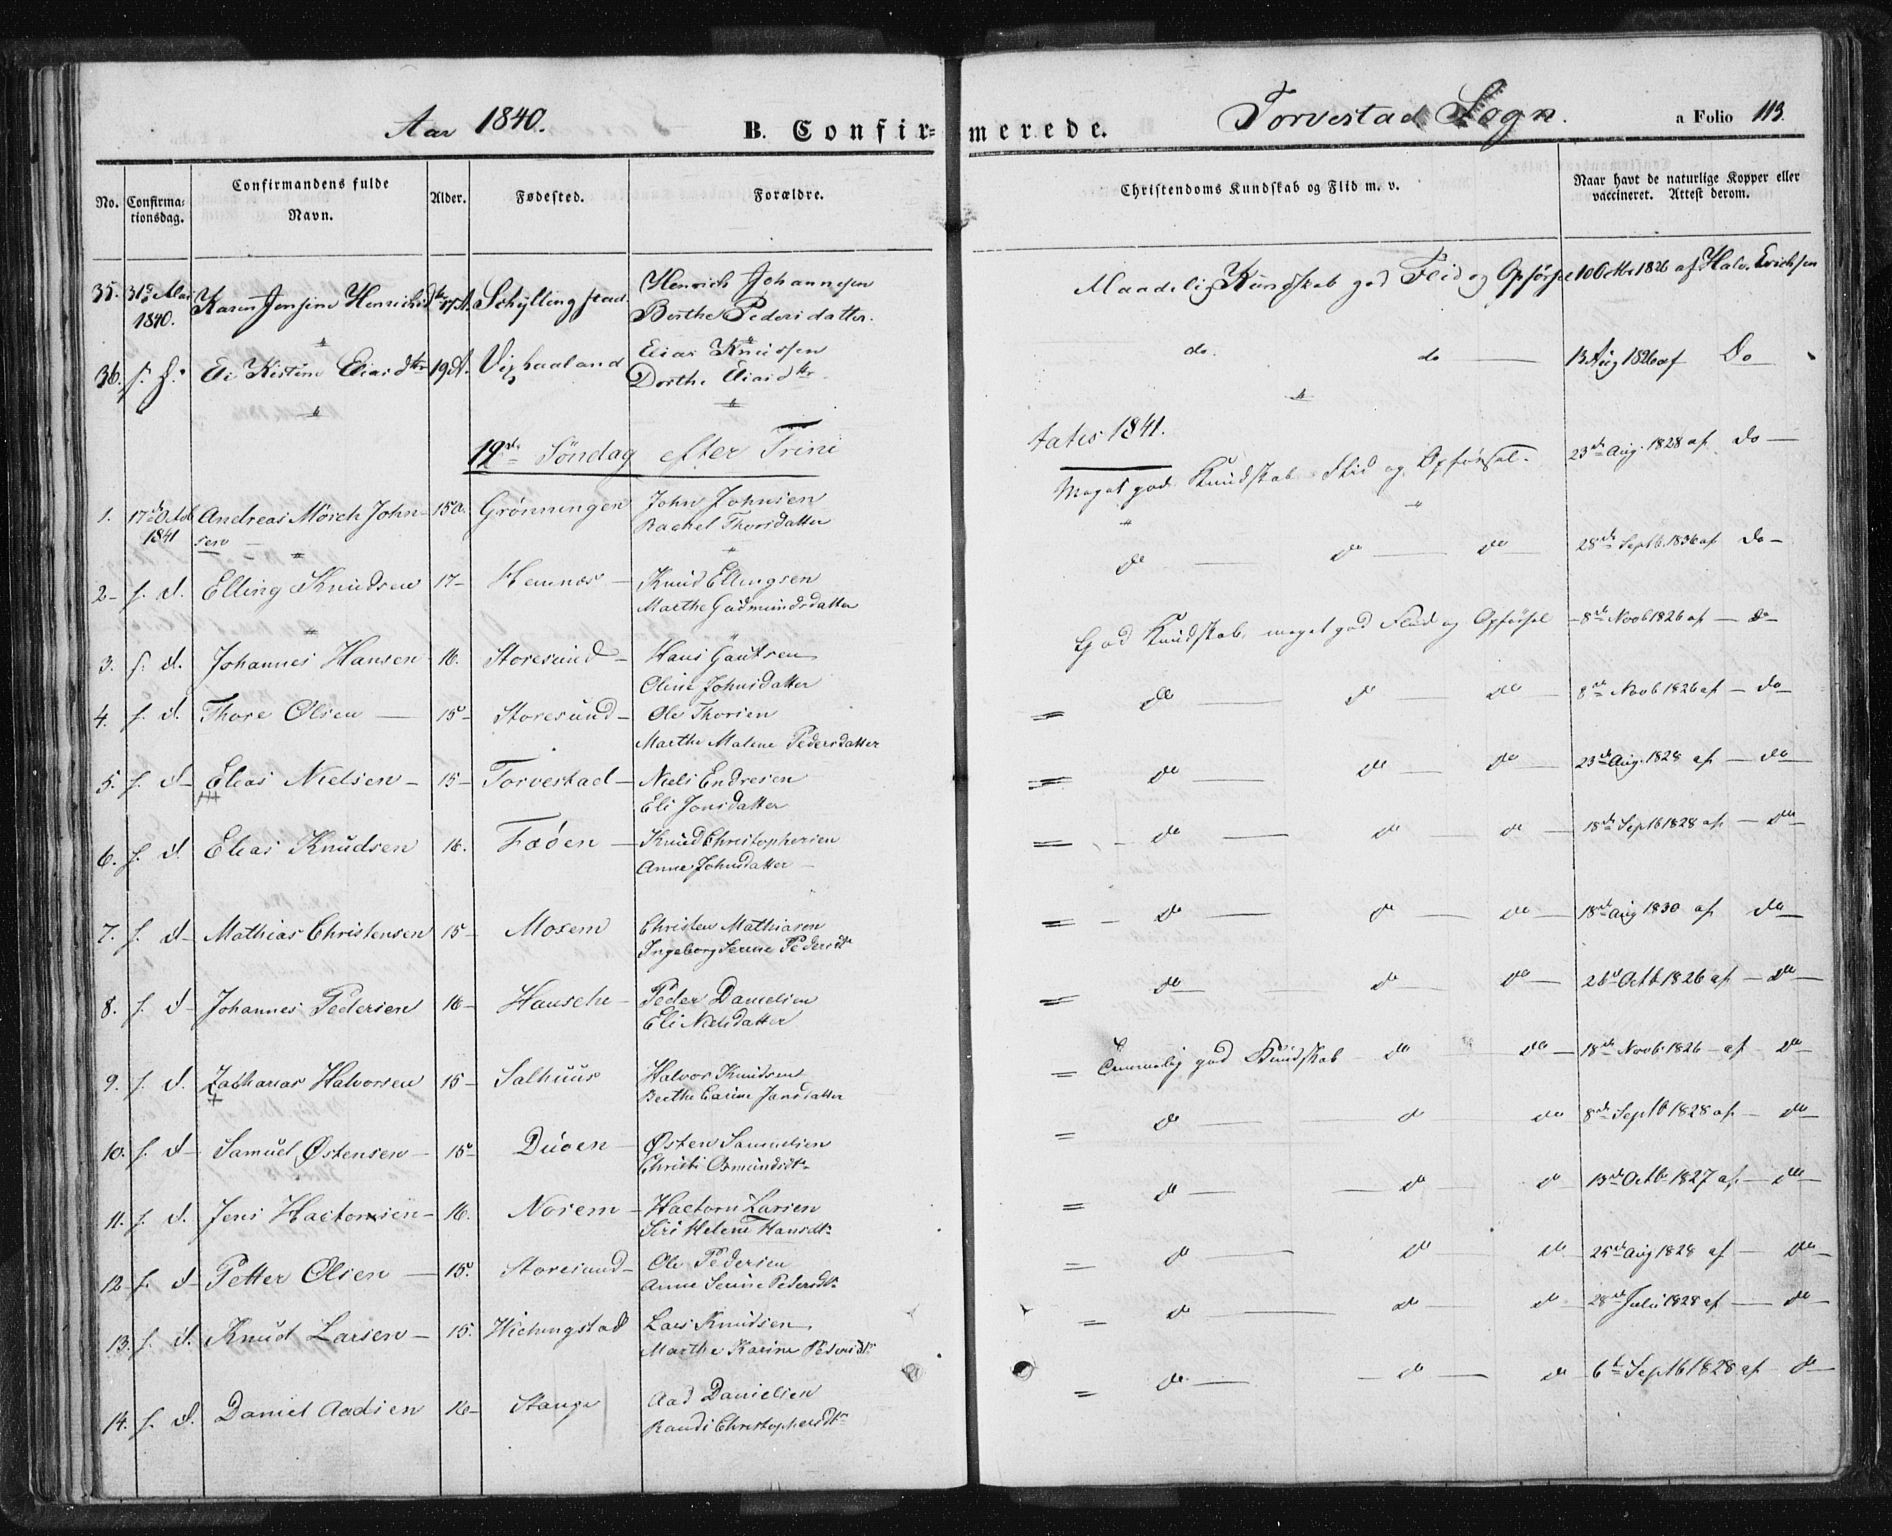 Aar 1840. B. Confir= merede. Torvestad Sogn. a Folio 113.
No. Confirma-tionsdag. Confirmandens fulde Navn. Alder. Fødested. Forældre. Christendoms Kundskab og Flid m. v. Naar havt de naturlige Kopper eller vaccineret. Attest derom.
35. 31te Mai Karen Jensine Henrichsdtr 17A. Schyllingstad Henrich Johannesen Maadelig Kundskab god Flid og Opførsel 10 Octbr 1826 af Halv. Erichsen
1840. Berthe Pedersdatter.
36. s. d. Eli Kistine Eliasdtr 19A. Vixhaaland Elias Knudsen do. do 13 Aug 1826 af Do
Dorthe Eliasdtr
19de Söndag efter Trini tatis 1841.
1. 17de Octb Andreas Mörch John- 15 a. Grönningen John Johnsen Meget god Kundskab Flid og Opførsel. 23de Aug. 1828 af do
1841 sen Rachel Thorsdatter
2 s. d. Elling Knudsen 17 Hemnes Knud Ellingsen do do do 28de Septb. 1836 af do
Marthe Gudmundsdatter
3. s. d. Johannes Hansen 16. Storesund Hans Gautsen God Kundskab, meget god Flid og Opførsel 8de Novb 1826 af do
Oline Johnsdatter
4. s. d. Thore Olsen 15 Storesund Ole Thorsen do do do 8de Novb 1826 af do
Marthe Malene Pedersdatter
5. s. d. Elias Nielsen 15 Torvestad Niels Endresen do do do 23de Aug. 1828 af do
Eli Jonsdatter
6. s. d. Elias Knudsen 16. Fæøen Knud Christophersen do do do 18de Septb 1828 af do
Anne Johnsdatter
7. s. d. Mathias Christensen 15 Moxem Christen Mathiasen do do do 18de Aug 1830 af do
Ingeborg Serine Pedersdtr
8. s. d. Johannes Pedersen 16 Hausche Peder Danielsen do do do 26de Octb 1826 af do
Eli Nielsdatter
9. s. d. Zacharias Halvorsen 15 Salhuus Halvor Knudsen Temmelig god Kundskab do do 18de Novb 1826 af do
Berthe Carine Jansdatter
10. s. d. Samuel Østensen 15 Duoen Østen Samuelsen do do do 8de Septb 1828 af do
Christi Osmundsdtr
11. s. d. Jens Hactornsen 16. Norem Hactorn Larsen do do do 13de Octb 1827 af do
Siri Helene Hansdtr
12 s. d. Petter Olsen 15. Storesund Ole Pedersen do do do 25de Aug 1828 af do
Anne Serine Pedersdtr
13. s. d. Knud Larsen 15. Hichingstad Lars Knudsen do do do 28de Juli 1828 af do
Marthe Karine Pedersdtr
14. s. d. Daniel Aadsen 16 Stange Aad Danielsen do do do 6te Septb 1828 af do
Randi Christophersdtr